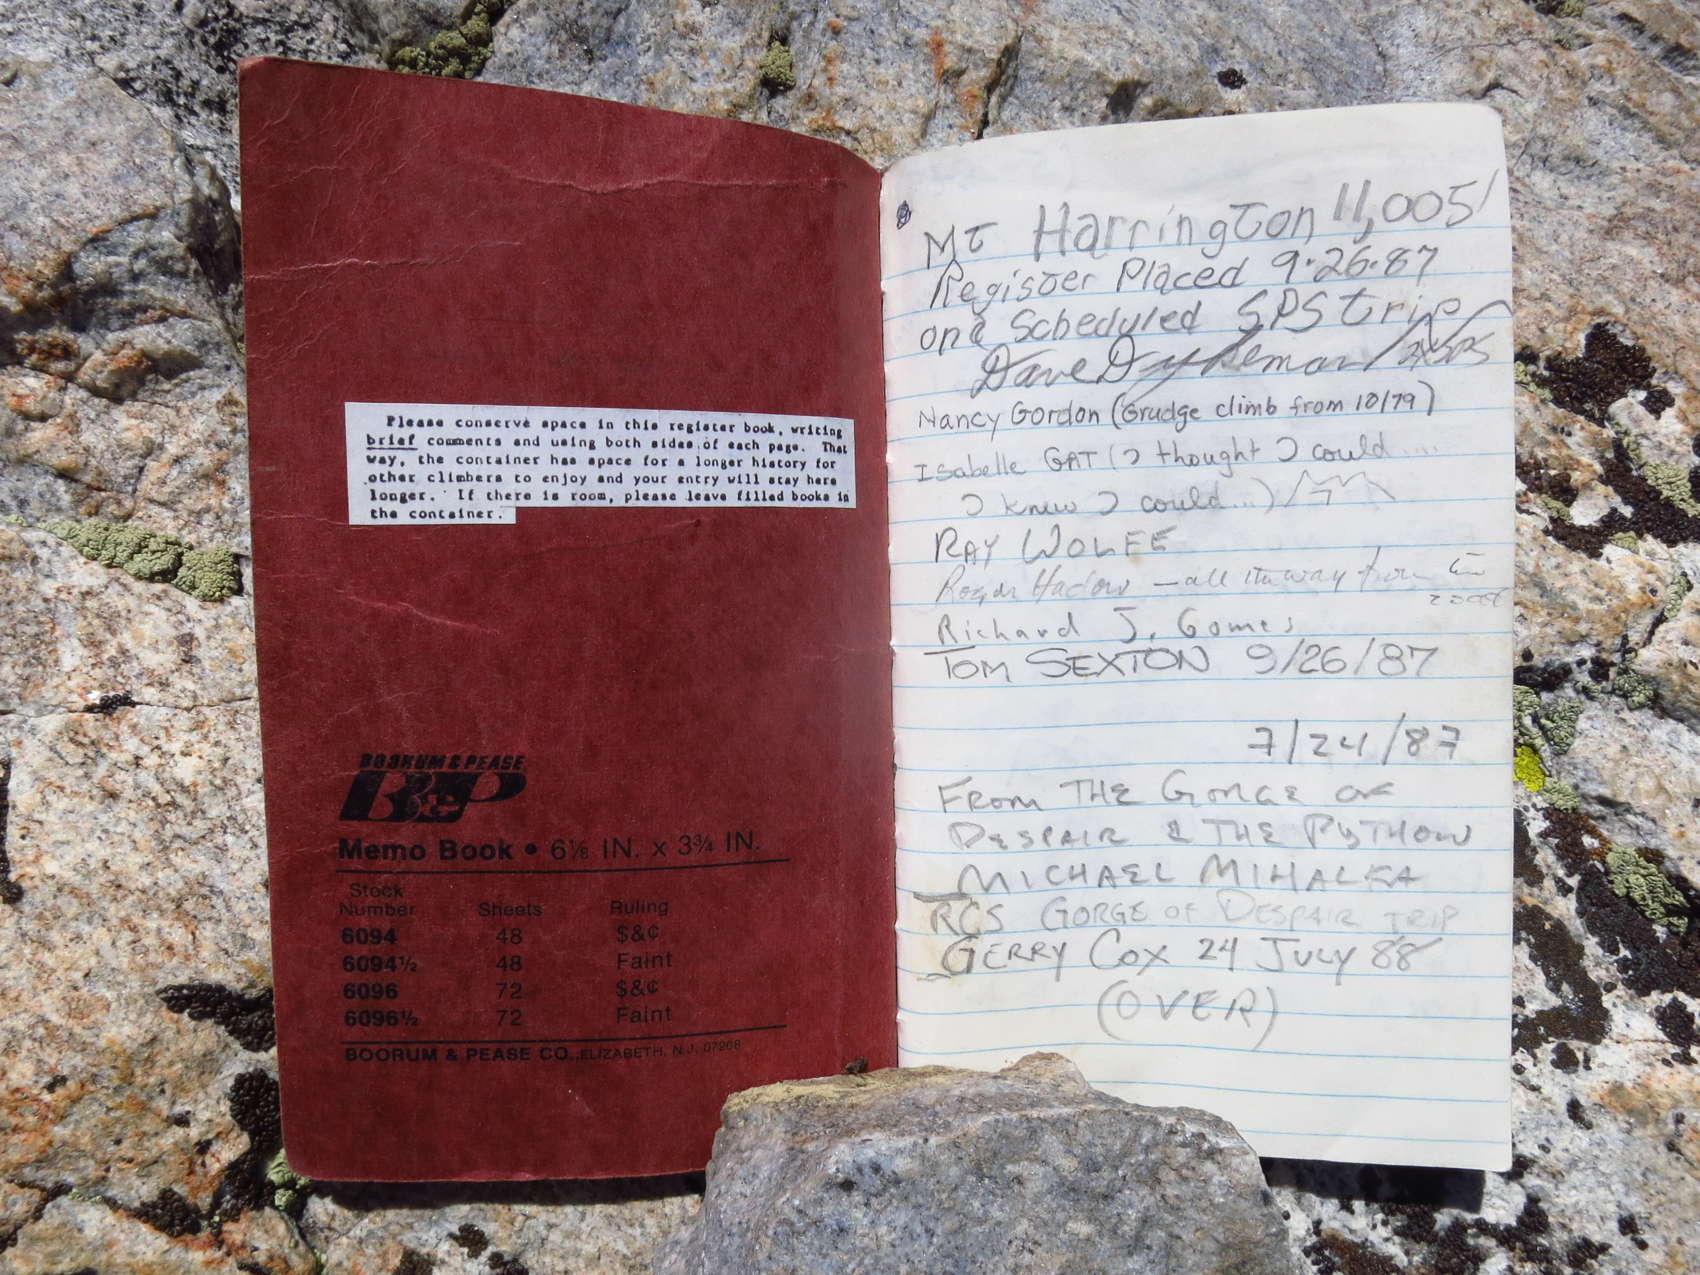 Please conserve space in this register book, writing
brief comments and using both sides of each page. That
way, the container has space for a longer history for
other climbers to enjoy and your entry will stay here
longer. If there is room, please leave filled books in
the container.
BOORUM & PEASE
B&P
Memo Book • 6⅛ IN. x 3¾ IN.
Stock
Number Sheets Ruling
6094 48 $&¢
6094½ 48 Faint
6096 72 $&¢
6096½ 72 Faint
BOORUM & PEASE CO., ELIZABETH, N.J. 07208
Mt Harrington 11,005'
Register Placed 9.26.87
on a Scheduled SPS trip
Dave Dykeman
Nancy Gordon (Grudge climb from 10/79)
Isabelle GAT (I thought I could....
I knew I could...)
RAY WOLFE
all the way from
Richard J. Gomes
Tom SEXTON 9/26/87
7/24/87
FROM THE GORGE OF
DESPAIR & THE PYTHON
MICHAEL MIHALKA
RCS GORGE OF DESPAIR TRIP
GERRY COX 24 JULY 88
(OVER)